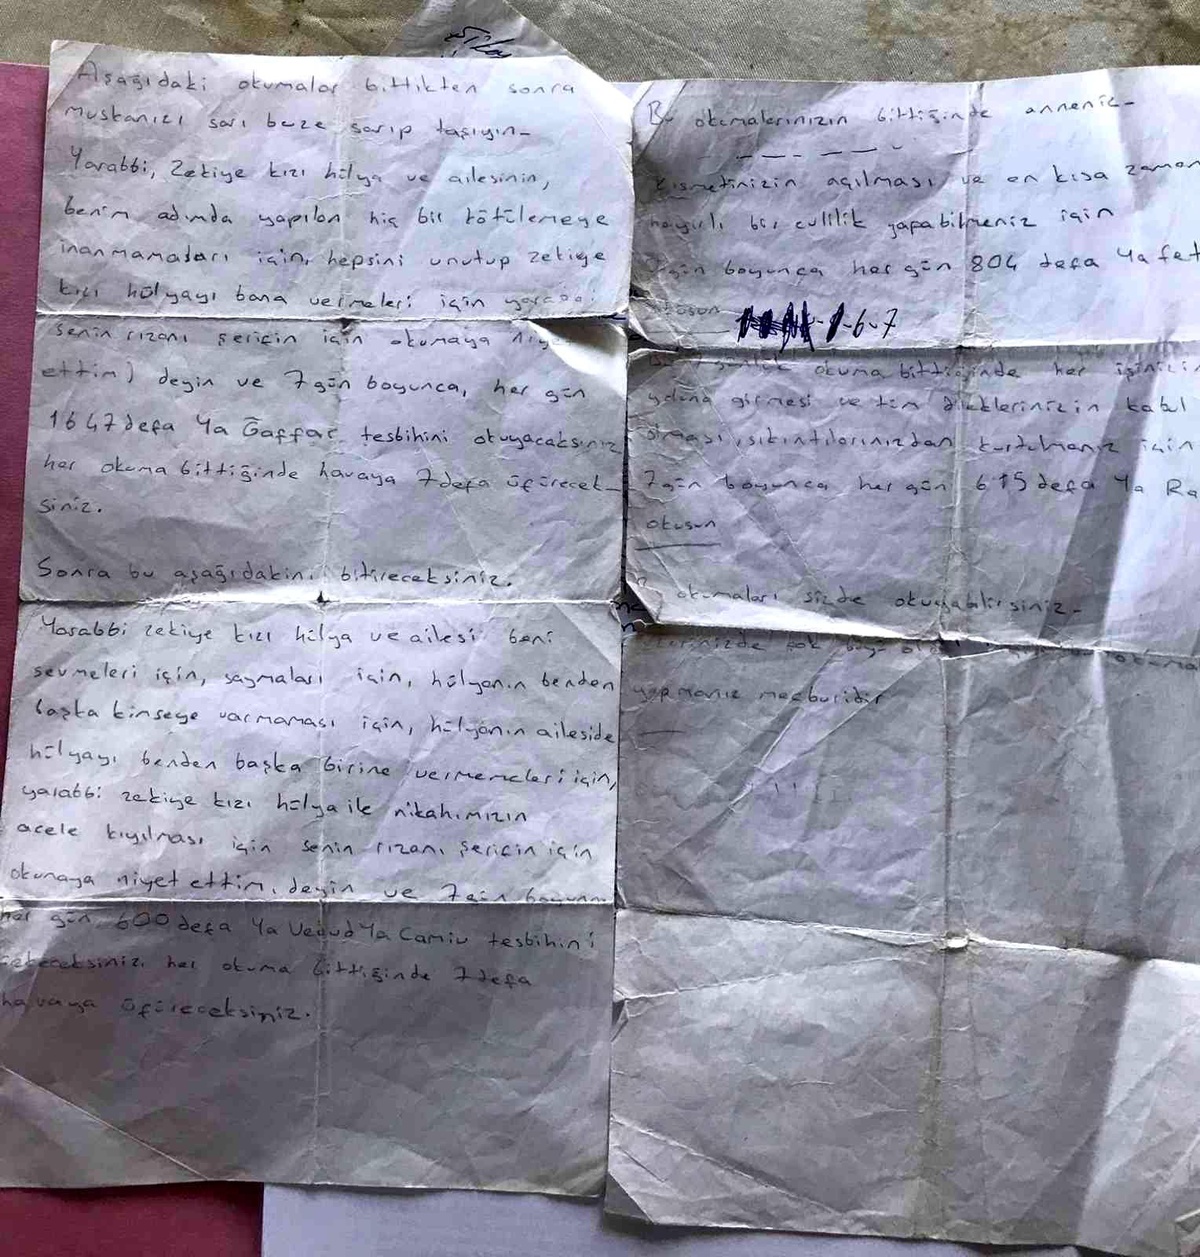 Aşağıdaki okumalar bittikten sonra
muskanızı sarı beze sarıp taşıyın-
Yarabbi, Zekiye kızı hülya ve ailesinin,
benim adımda yapılan hiç bir kötülemeye
inanmamaları için, hepsini unutup zekiye
kızı hülyayı bana vermeleri için yarabbi
senin rızanı şerifin için okumaya niyet
ettim) deyin ve 7 gün boyunca, her gün
1647 defa Ya Gaffar tesbihini okuyacaksınız
her okuma bittiğinde havaya 7 defa üfürecek-
siniz.
Sonra bu aşağıdakini bitireceksiniz.
Yarabbi zekiye kızı hülya ve ailesi beni
sevmeleri için, saymaları için, hülyanın benden
başka kimseye varmaması için, hülyanın aileside
hülyayı benden başka birine vermemeleri için,
yarabbi zekiye kızı hülya ile nikahımızın
acele kıyılması için senin rızanı şerifin için
okumaya niyet ettim, deyin ve 7 gün boyunca
her gün 600 defa Ya Vedud Ya Camiu tesbihini
çekeceksiniz. her okuma bittiğinde 7 defa
havaya üfüreceksiniz.
Bu okumalarınızın bittiğinde anneniz-
kısmetinizin açılması ve en kısa zaman
hayırlı bir evlilik yapabilmeniz için
7 gün boyunca her gün 804 defa Ya fet
okusun -6-7
okuma bittiğinde her işinizin
yoluna girmesi ve tüm dileklerinizin kabul
olması, sıkıntılarınızdan kurtulmanız için
7 gün boyunca her gün 615 defa Ya Ra
okusun
okumaları sizde okuyabilirsiniz-
çok büyü
yapmanız mecburidir